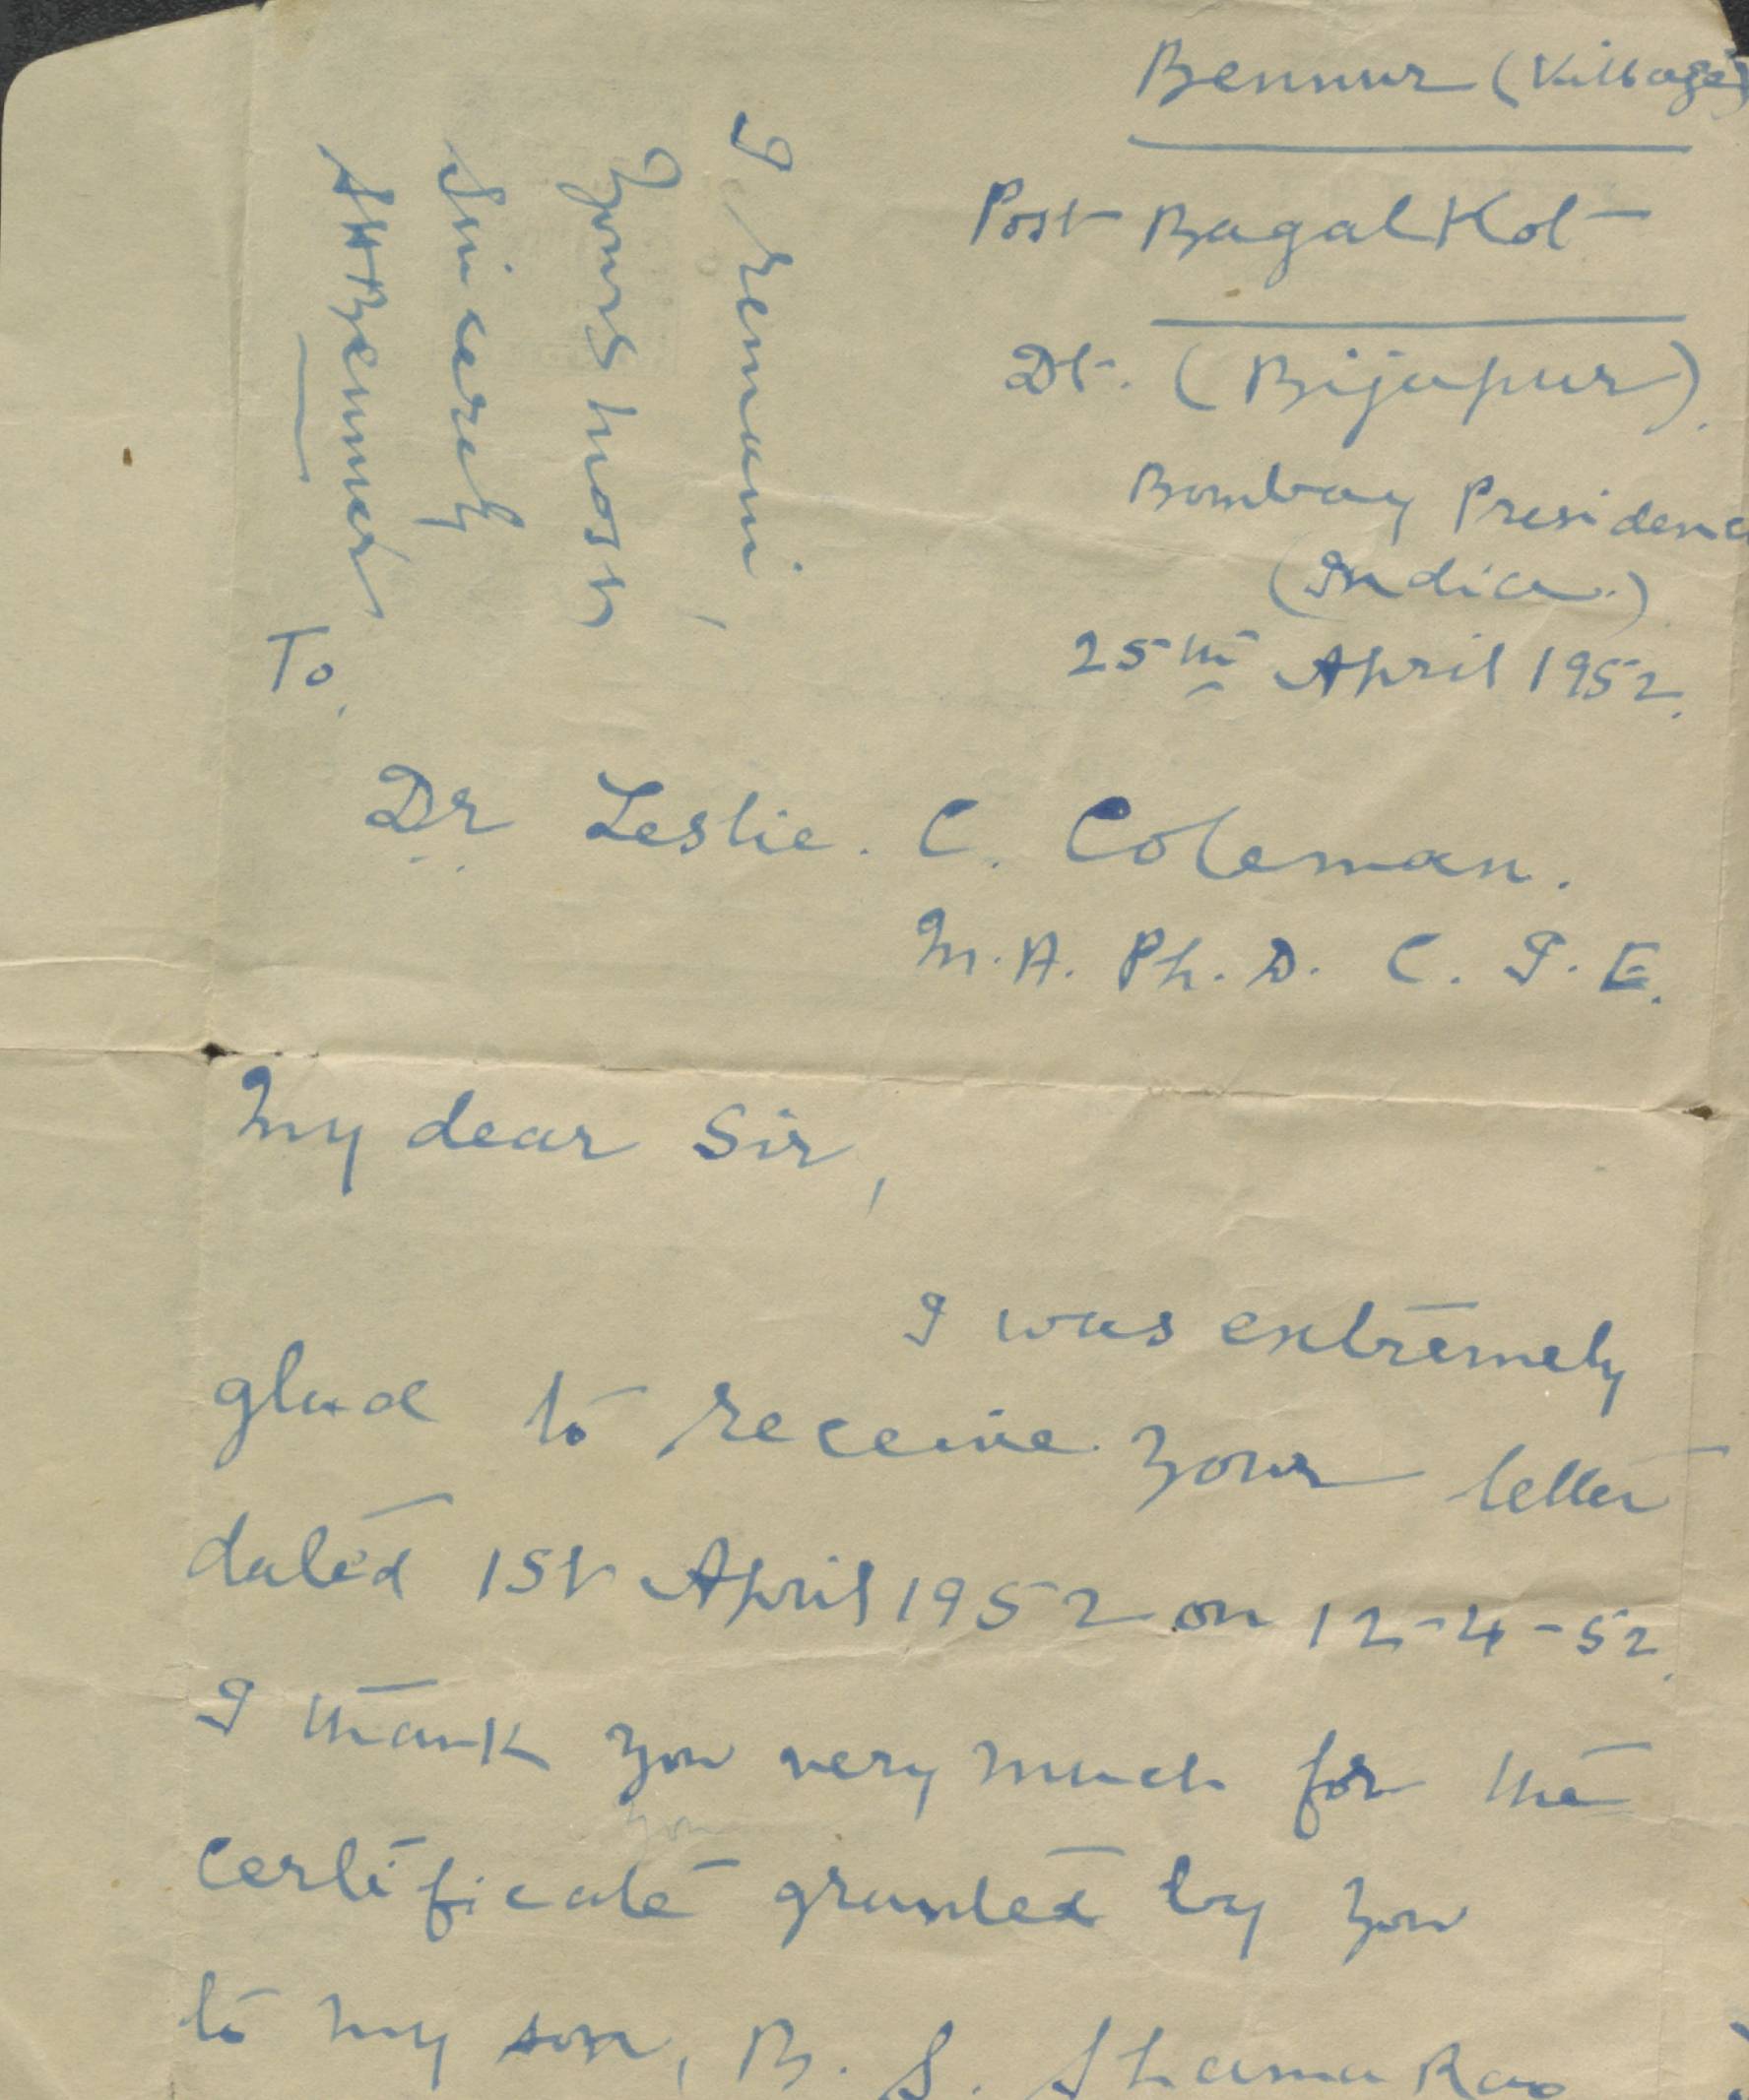 Bennur (Village)
Post Bagal Kot
Dt. (Bijapur).
Bombay Presidenc
(India.)
25th April 1952.
To,
Dr Leslie. C. Coleman.
M.A. Ph.D. C. I. E.
My dear Sir,
I was extremely
glad to receive your letter
dated 1st April 1952 on 12-4-52.
I thank you very much for the
you
certificate granted by you
to my son, B. S. Shama Rao
I remain,
Yours most
Sincerely
Bennur